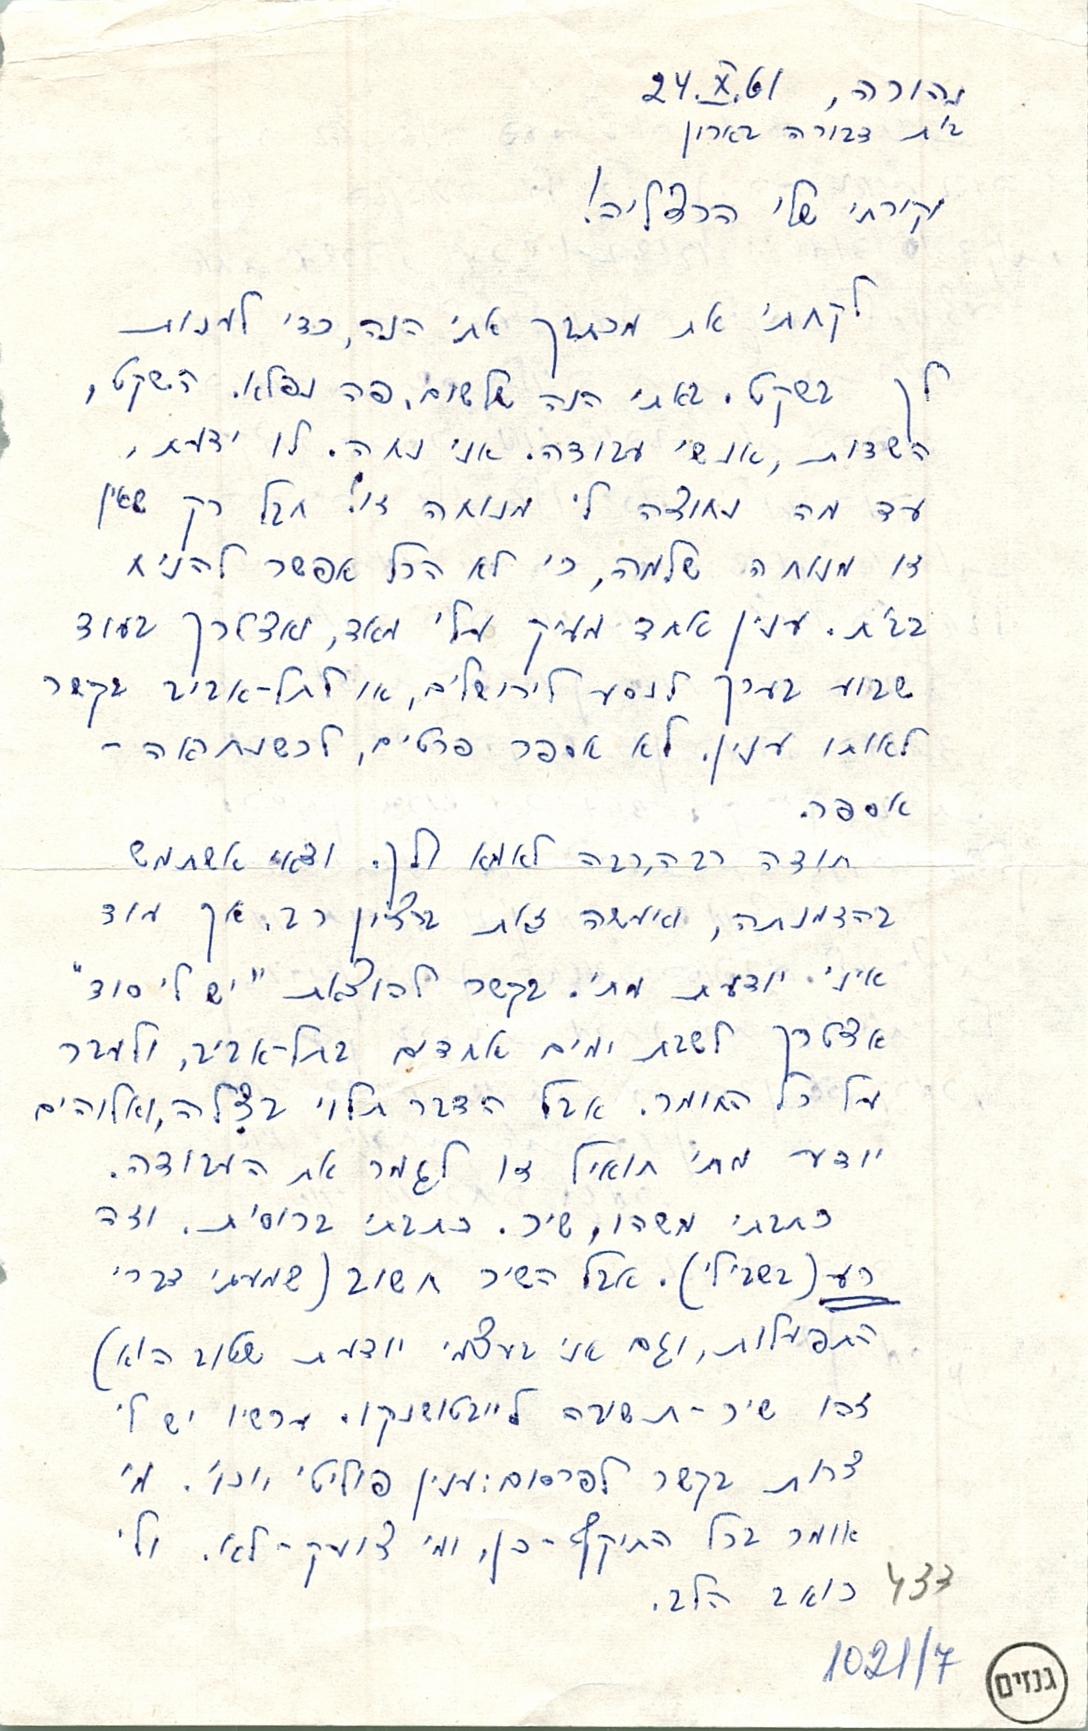 נהורה, 24.X.61
בית דבורה בארון
יקירתי שלי הרצליה!
לקחתי את מכתבך אתי הנה, כדי לענות
לך בשקט. באתי הנה שלשום. פה נפלא. השקט,
השדות, אנשי עבודה. אני נחה. לו ידעת,
עד מה נחוצה לי מנוחה זו! חבל רק שאין
זו מנוחה שלמה, כי לא הכל אפשר להניח
בבית. ענין אחד מעיק עלי מאד, ואצטרך בעוד
שבוע בערך לנסע לירושלים, או לתל-אביב בקשר
לאותו ענין. לא אספר פרטים, לכשנתראה -
אספר.
תודה רבה, רבה לאמא ולך. ודאי אשתמש
בהזמנתה, ואעשה זאת ברצון רב. אך עוד
אינני יודעת מתי. בקשר להוצאת "יש לי סוד"
אצטרך לשבת ימים אחדים בתל-אביב, ולעבר
על כל החומר. אבל הדבר תלוי בצלה, ואלוהים
יודע מתי תואיל זו לגמר את העבודה.
כתבתי משהו, שיר. כתבתי ברוסית. וזה
רע (בשבילי). אבל השיר חשוב (שמעתי דברי
התפעלות, וגם אני בעצמי יודעת שטוב הוא)
זהו שיר-תשובה לייבטושנקו. עכשיו יש לי
צרות בקשר לפרסום: ענין פוליטי וכו'. מי
אומר בכל התוקף - כן, ומי צועק - לא. ולי
כואב הלב.
433
1021/7
גנזים